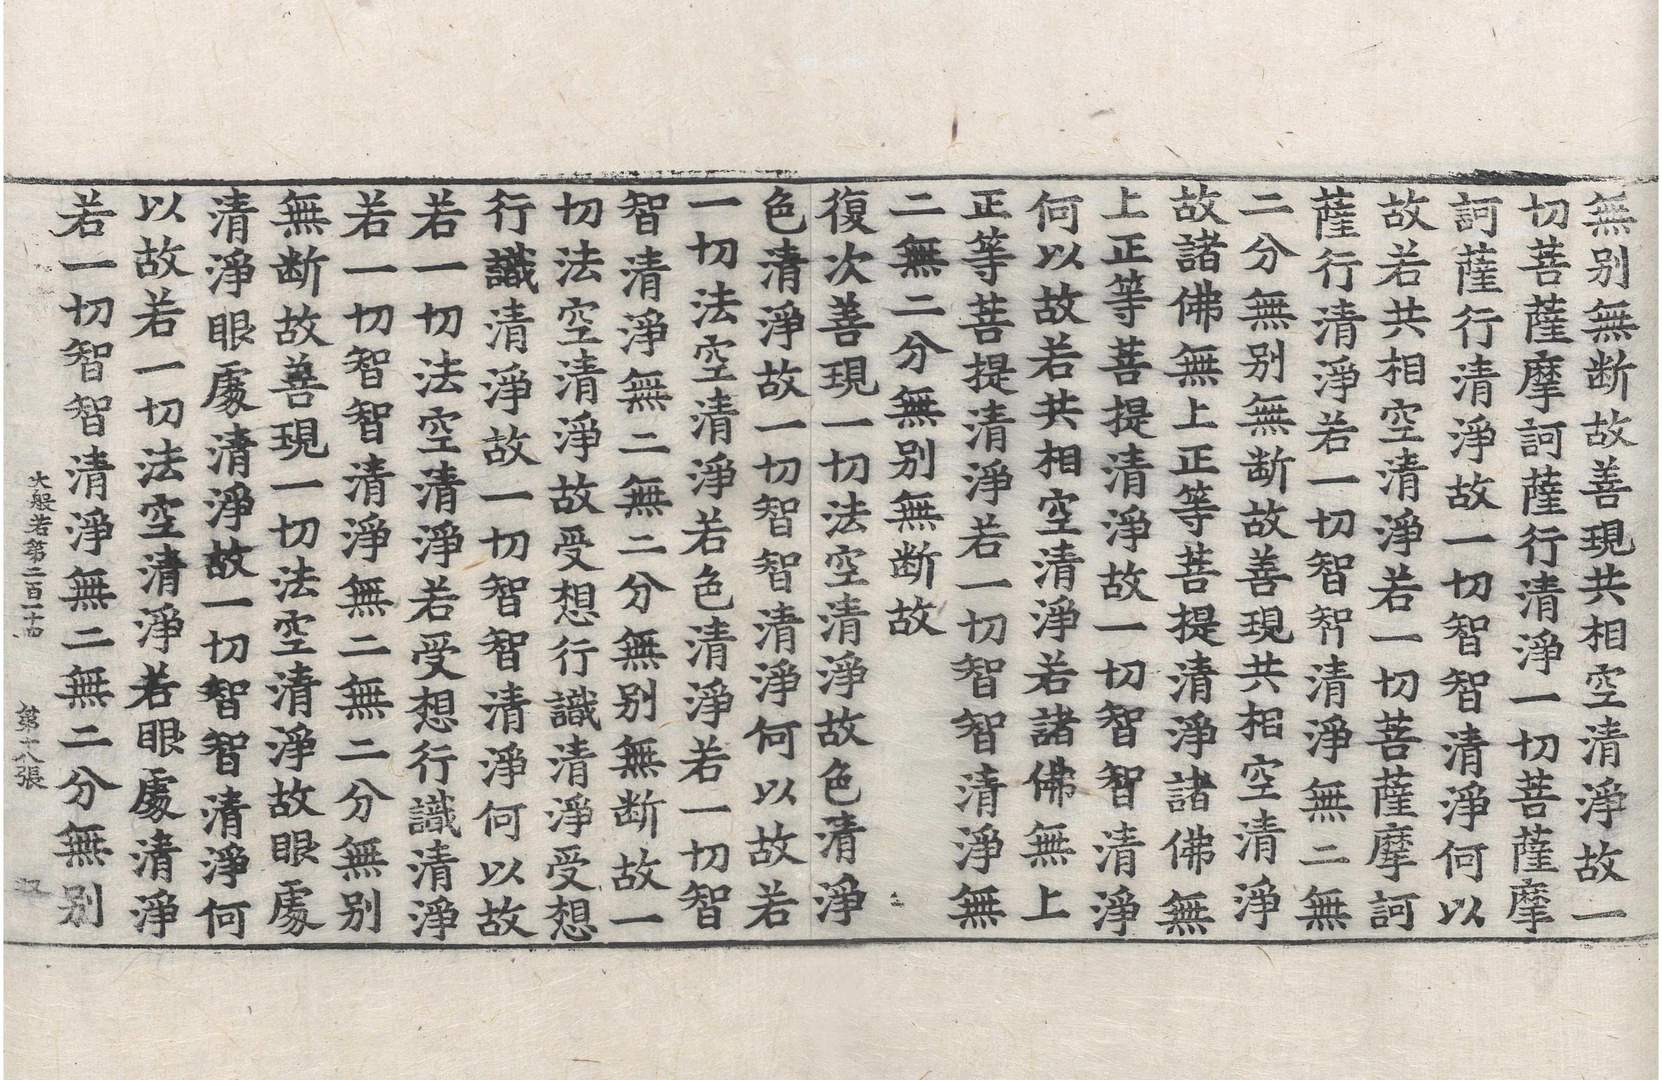 無别無断故善現共相空清淨故一
切菩薩摩訶薩行清淨一切菩薩摩
訶薩行清淨故一切智智清淨何以
故若共相空清淨若一切菩薩摩訶
薩行清淨若一切智智清淨無二無
二分無别無断故善現共相空清淨
故諸佛無上正等菩提清淨諸佛無
上正等菩提清淨故一切智智清淨
何以故若共相空清淨若諸佛無上
正等菩提清淨若一切智智清淨無
二無二分無别無断故
復次善現一切法空清淨故色清淨
色清淨故一切智智清淨何以故若
一切法空清淨若色清淨若一切智
智清淨無二無二分無别無断故一
切法空清淨故受想行識清淨受想
行識清淨故一切智智清淨何以故
若一切法空清淨若受想行識清淨
若一切智智清淨無二無二分無别
無断故善現一切法空清淨故眼處
清淨眼處清淨故一切智智清淨何
以故若一切法空清淨若眼處清淨
若一切智智清淨無二無二分無别
大般若第二百一十四 第十八張